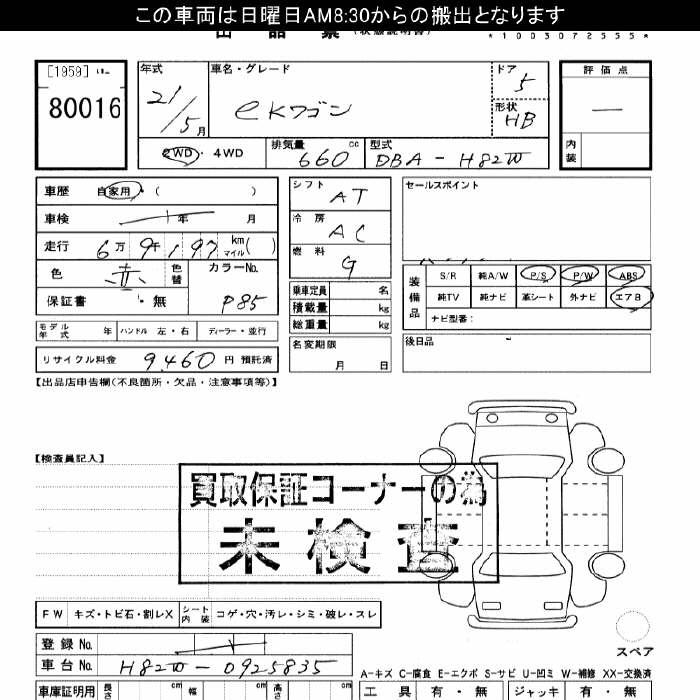 この車両は日曜日AM8:30からの搬出となります
出品票 (状態説明書)
*1003072555*
[1959]
80016
年式 21/5月
車名・グレード eKワゴン
ドア 5
形状 HB
評価点 —
内装
2WD・4WD
排気量 660 cc
型式 DBA-H82W
車歴 自家用・( )
車検 年 月
走行 6万9千197 km マイル( )
色 赤 色替
カラーNo. P85
保証書 ・無
シフト AT
冷房 AC
燃料 G
乗車定員 名
積載量 kg
総重量 kg
セールスポイント
装備品
S/R 純A/W P/S P/W ABS
純TV 純ナビ 革シート 外ナビ エアB
ナビ型番:
モデル年式 年 ハンドル 左・右 ディーラー・並行
リサイクル料金 9,460 円 預託済
名変期限 月 日
後日品
【出品店申告欄(不良箇所・欠品・注意事項等)】
【検査員記入】
買取保証コーナーの為
未検査
FW キズ・トビ石・割レX シート内装 コゲ・穴・汚レ・シミ・破レ・スレ
スペア
登録No.
車台No. H82W-0925835
A-キズ C-腐食 E-エクボ S-サビ U-凹ミ W-補修 XX-交換済
車庫証明用 長さ cm 幅 cm 高さ cm
工具 有・無 ジャッキ 有・無